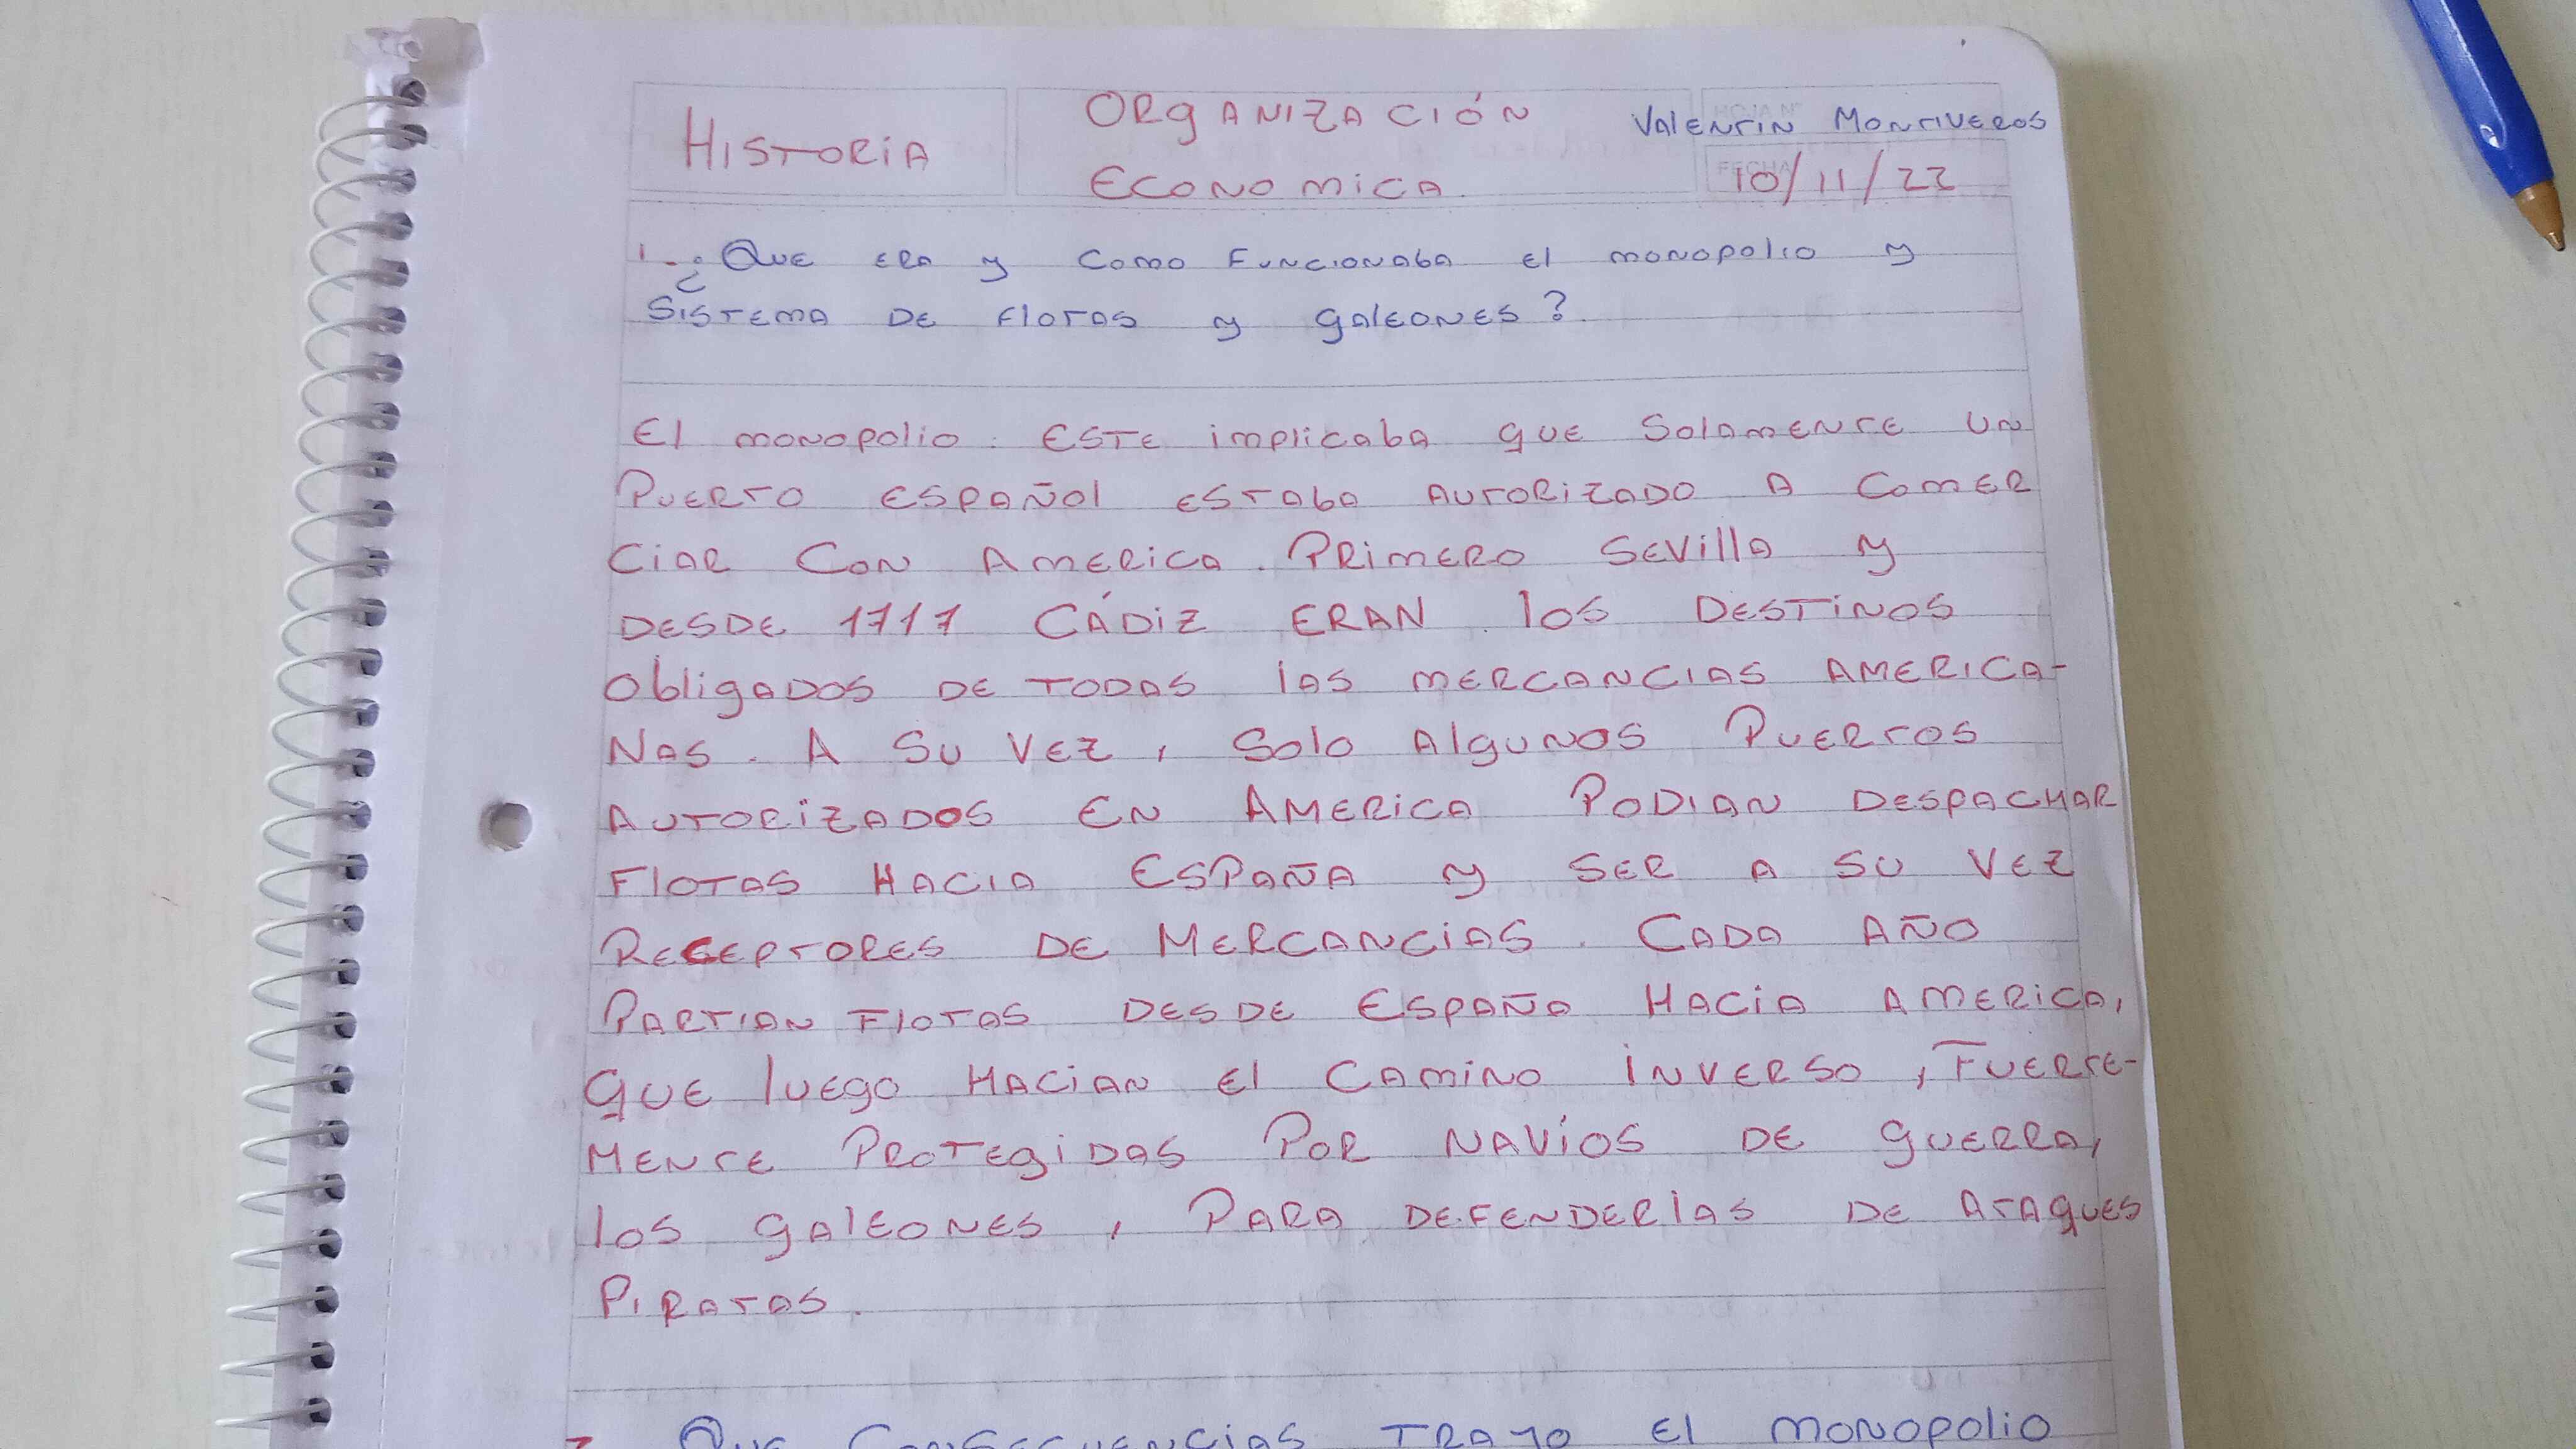 HISTORIA
ORGANIZACIÓN
ECONOMICA.
VALENTIN MONTIVEROS
HOJA Nº
FECHA 10/11/22
1-. ¿QUE ERA y COMO FUNCIONABA El MONOPOLIO y
SISTEMA DE FLOTAS y gALEONES?
El MONOPOLIO. ESTE IMPLICABA qUE SOLAMENTE UN
PUERTO ESPAÑOl ESTABA AUTORIZADO A COMER
CIAR CON AMERICA. PRIMERO SEVILLA y
DESDE 1717 CÁDIZ ERAN lOS DESTINOS
OBLIGADOS DE TODAS lAS MERCANCIAS AMERICA-
NAS. A SU VEZ, SOLO ALGUNOS PUERTOS
AUTORIZADOS EN AMERICA PODIAN DESPACHAR
FLOTAS HACIA ESPAÑA y SER A SU VEZ
RECEPTORES DE MERCANCIAS. CADA AÑO
PARTIAN FLOTAS DESDE ESPAÑA HACIA AMERICA,
qUE lUEGO HACIAN El CAMINO INVERSO, FUERTE-
MENTE PROTEGIDAS POR NAVÍOS DE gUERRA,
lOS gALEONES, PARA DEFENDERLAS DE ATAQUES
PIRATAS.
QUE CONSECUENCIAS TRAJO El MONOPOLIO